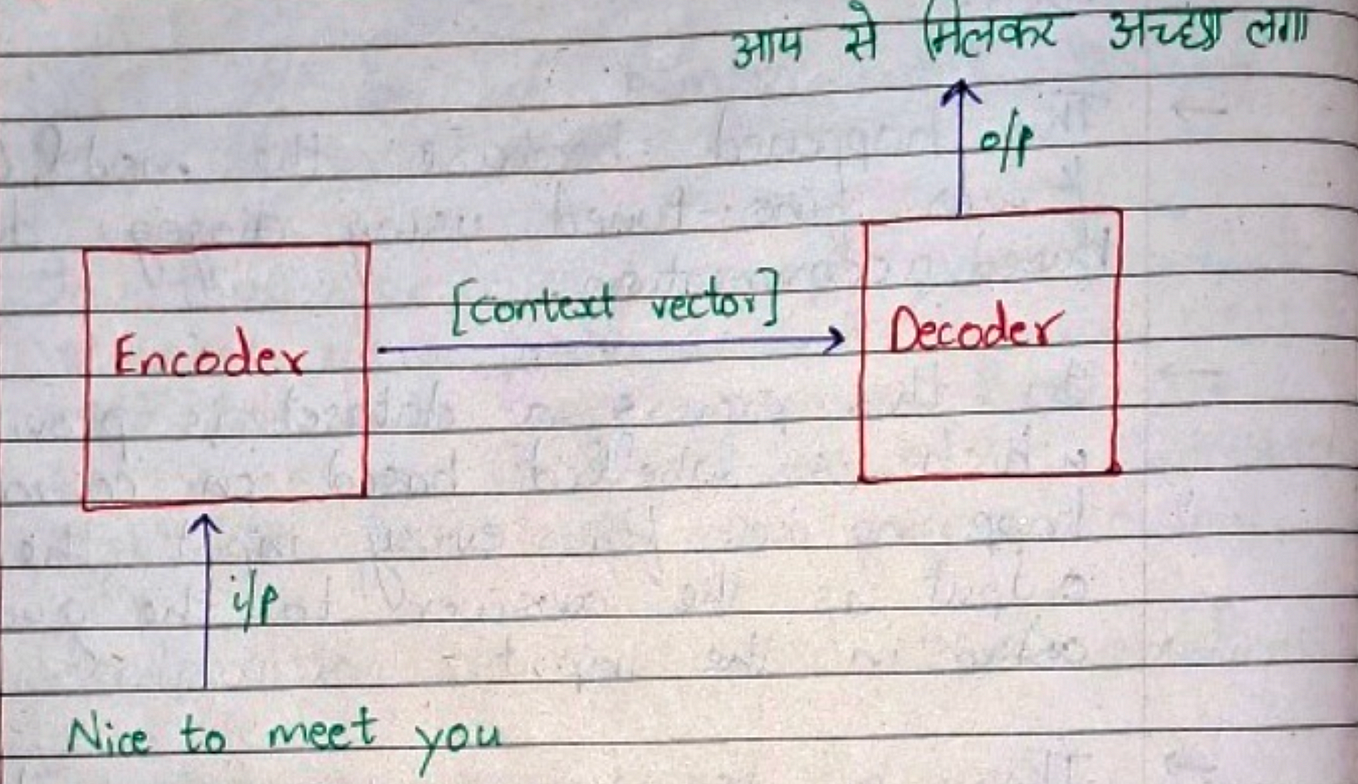 आप से मिलकर अच्छा लगा
o/p
[context vector]
Encoder
Decoder
i/p
Nice to meet you